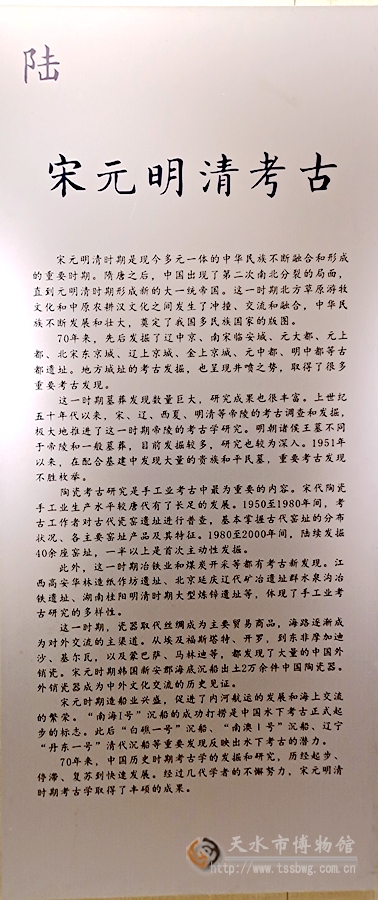 陆
宋元明清考古
宋元明清时期是现今多元一体的中华民族不断融合和形成
的重要时期。隋唐之后，中国出现了第二次南北分裂的局面，
直到元明清时期形成新的大一统帝国。这一时期北方草原游牧
文化和中原农耕汉文化之间发生了冲撞、交流和融合，中华民
族不断发展和壮大，奠定了我国多民族国家的版图。
70年来，先后发掘了辽中京、南宋临安城、元大都、元上
都、北宋东京城、辽上京城、金上京城、元中都、明中都等古
都遗址。地方城址的考古发掘，也呈现井喷之势，取得了很多
重要考古发现。
这一时期墓葬发现数量巨大，研究成果也很丰富。上世纪
五十年代以来，宋、辽、西夏、明清等帝陵的考古调查和发掘，
极大地推进了这一时期帝陵的考古学研究。明朝诸侯王墓不同
于帝陵和一般墓葬，目前发掘较多，研究也较为深入。1951年
以来，在配合基建中发现大量的贵族和平民墓，重要考古发现
不胜枚举。
陶瓷考古研究是手工业考古中最为重要的内容。宋代陶瓷
手工业生产水平较唐代有了长足的发展。1950至1980年间，考
古工作者对古代瓷窑遗址进行普查，基本掌握古代窑址的分布
状况、各主要窑址产品及其特征。1980至2000年间，陆续发掘
40余座窑址，一半以上是首次主动性发掘。
此外，这一时期冶铁业和煤炭开采等都有考古新发现。江
西高安华林造纸作坊遗址、北京延庆辽代矿冶遗址群水泉沟冶
铁遗址、湖南桂阳明清时期大型炼锌遗址等，体现了手工业考
古研究的多样性。
这一时期，瓷器取代丝绸成为主要贸易商品，海路逐渐成
为对外交流的主渠道。从埃及福斯塔特、开罗，到东非摩加迪
沙、基尔瓦，以及蒙巴萨、马林迪等，都发现了大量的中国外
销瓷。宋元时期韩国新安郡海底沉船出土2万余件中国陶瓷器。
外销瓷器成为中外文化交流的历史见证。
宋元时期造船业兴盛，促进了内河航运的发展和海上交流
的繁荣。“南海Ⅰ号”沉船的成功打捞是中国水下考古正式起
步的标志。此后“白礁一号”沉船、“南澳Ⅰ号”沉船、辽宁
“丹东一号”清代沉船等重要发现反映出水下考古的潜力。
70年来，中国历史时期考古学的发掘和研究，历经起步、
停滞、复苏到快速发展。经过几代学者的不懈努力，宋元明清
时期考古学取得了丰硕的成果。
天水市博物馆
http://www.tssbwg.com.cn